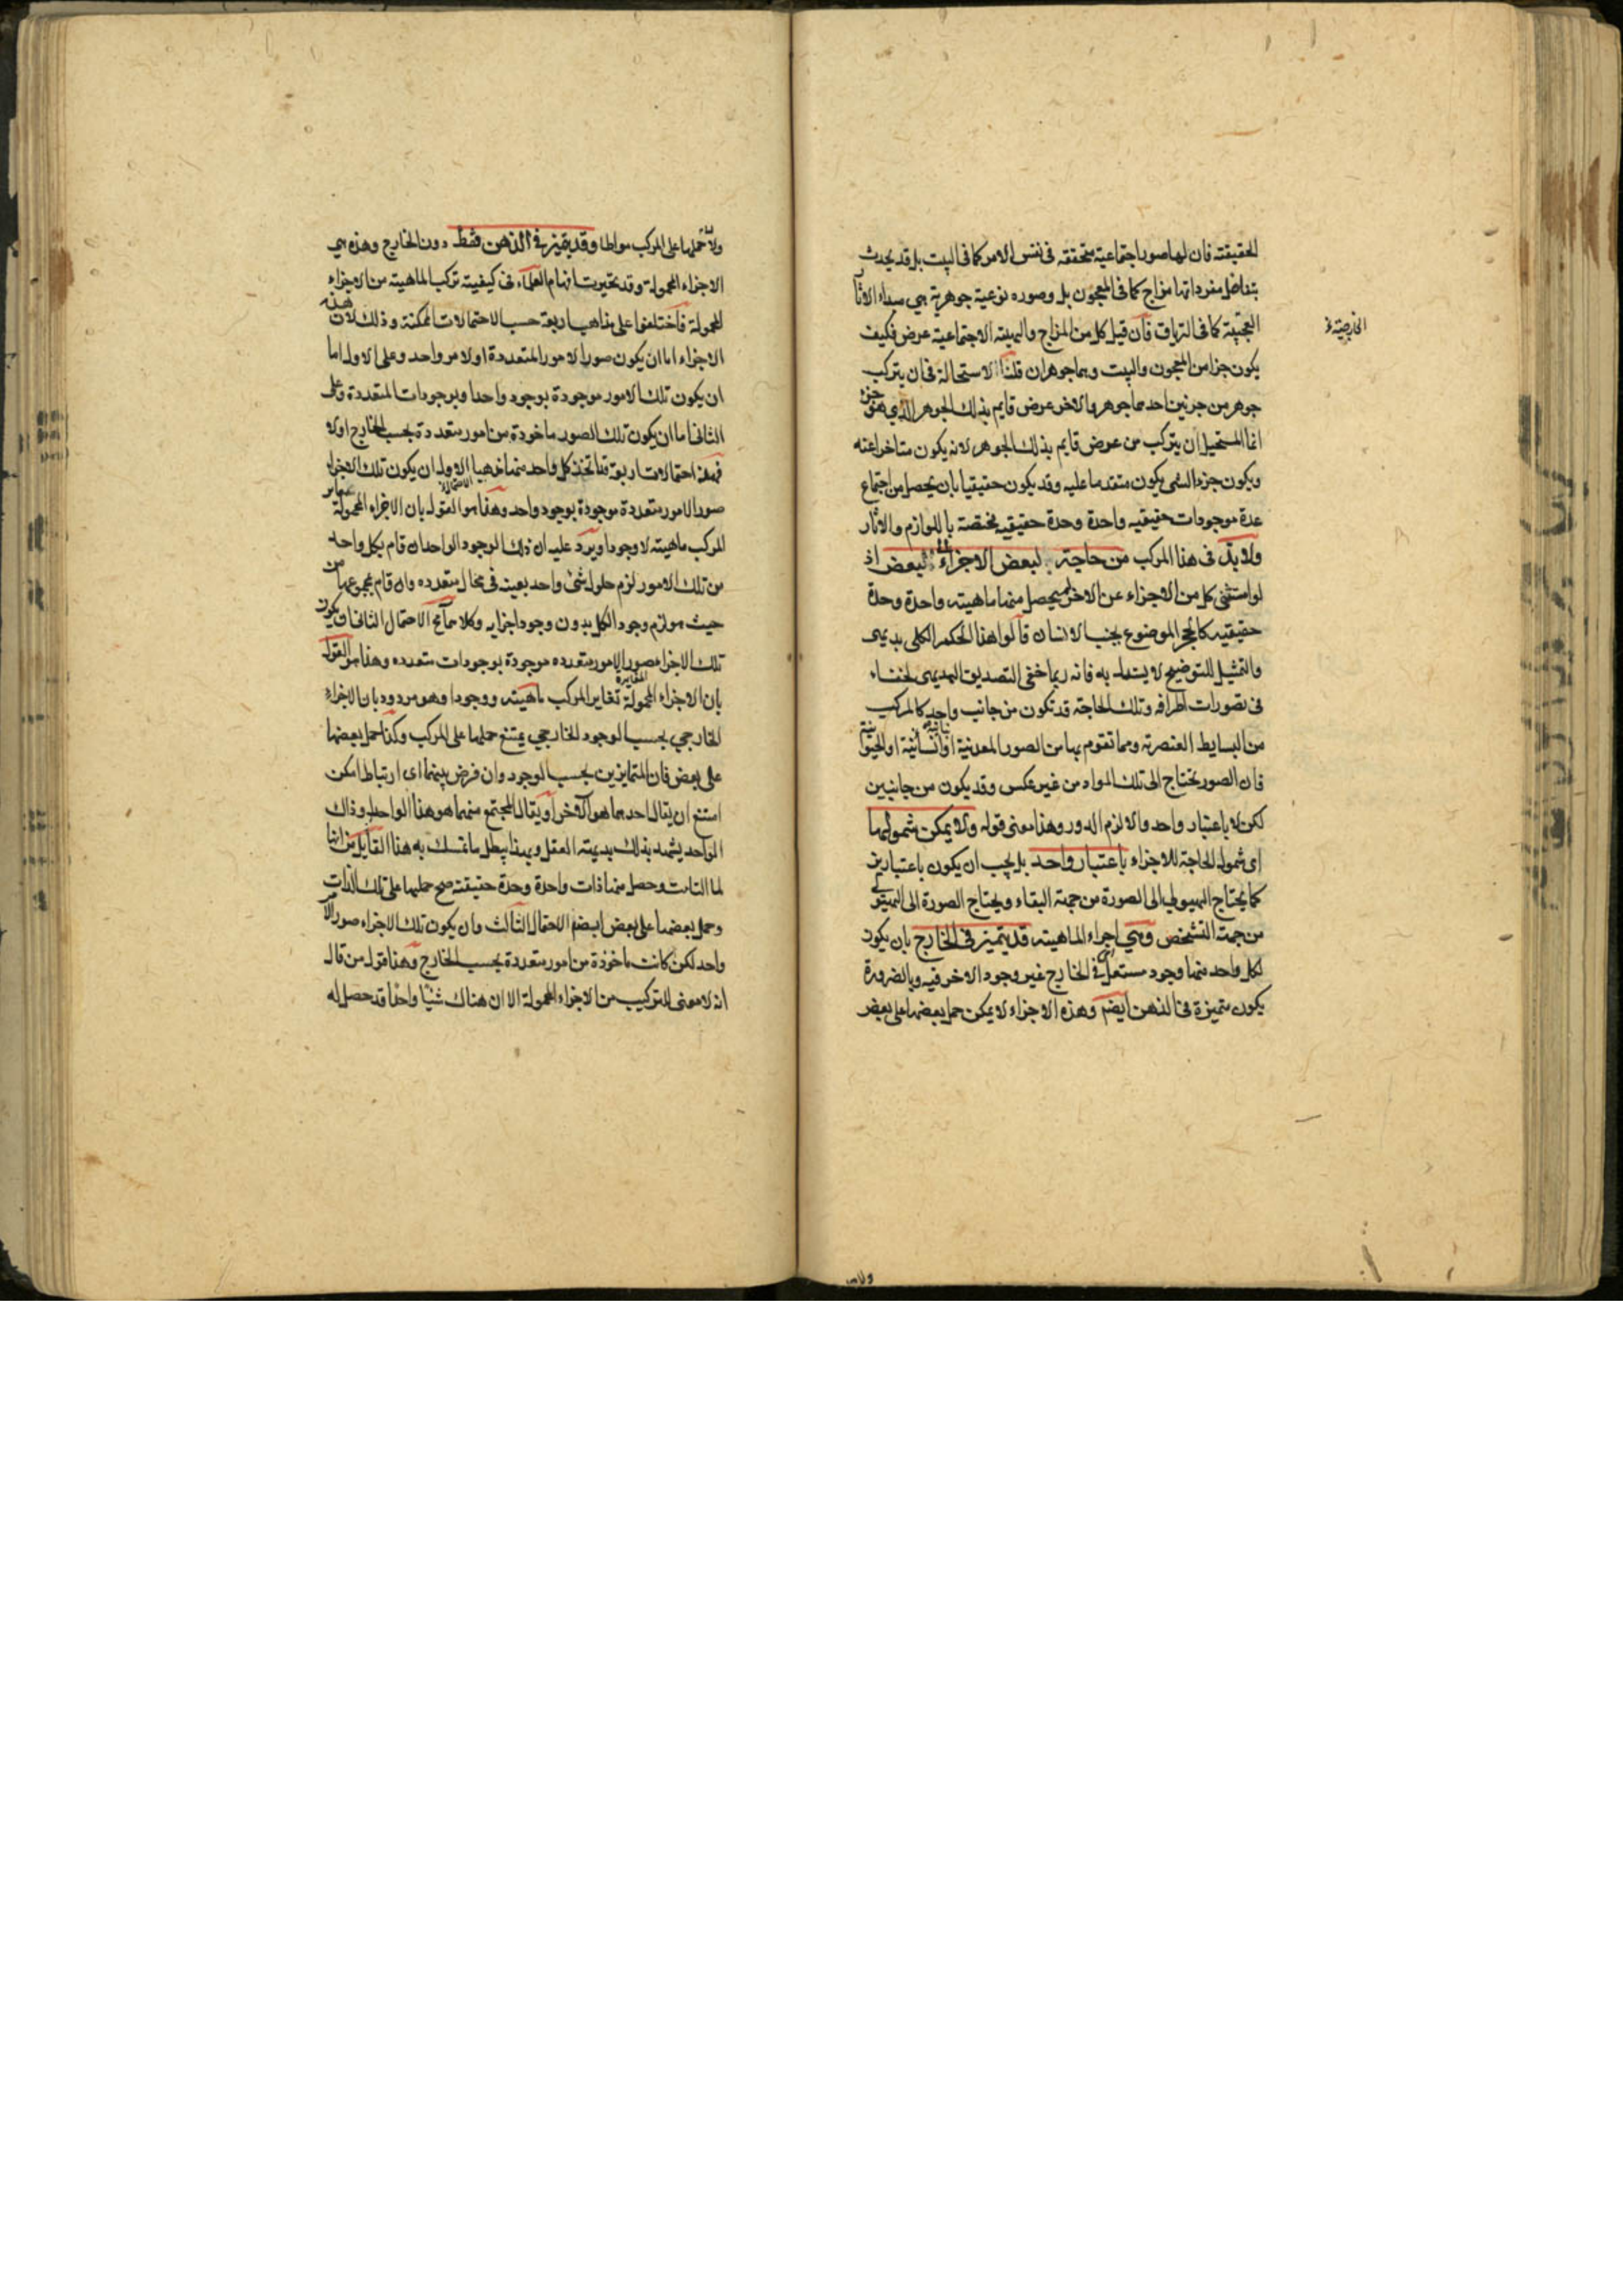 الحقيقته فان لها صورا اجتماعية متحققه فى نفس الامر كما فى البيت بل قد يحدث
بتفاضل مفرداتها مزاج كما فى المعجون بل وصوره نوعية جوهرية هى مبداء الاثار
العجيبة كما فى الترياق فان قيل كل من المزاج والهيئته الاجتماعية عرض فكيف
الخارجية
يكون جزا من المعجون والبيت وهما جوهران قلنا الاستحالة فى ان يتركب
جوهر من جزئين احدهما جوهر والاخر عرض قايم بذلك الجوهر الذى هو جزء
انما المستحيل ان يتركب من عرض قايم بذلك الجوهر لانه يكون متاخرا عنه
ويكون جزء الشى يكون متقدما عليه وقد يكون حقيقيا بان يحصل من اجتماع
عدة موجودات حقيقيه واحدة وحدة حقيقيه مختصة باللوازم والاثار
ولا بد فى هذا المركب من حاجة لبعض الاجزاء الى البعض اذ
لو استغنى كل من الاجزاء عن الاخر لم يحصل منها ماهيته واحدة وحدة
حقيقيه كالحجر الموضوع بجنب الانسان قالوا هذا الحكم الكلى بديهى
والتمثيل للتوضيح لا يستدل به فانه ربما خفى التصديق البديهى لخفاء
فى تصورات اطرافه وتلك الحاجة قد تكون من جانب واحد كالمركب
من البسايط العنصرته ومما تقوم بها من الصور المعدنية او النباتية او الحيوانية
فان الصور يحتاج الى تلك المواد من غير عكس وقد يكون من جانبين
لكن لا باعتبار واحد والا لزم الدور وهذا معنى قوله ولا يمكن شمولها
اى شمول الحاجة للاجزاء باعتبار واحد بل يجب ان يكون باعتبارين
كما يحتاج الهيولى الى الصورة من جهة البقاء ويحتاج الصورة الى الهيولى
من جهة التشخص وهى اجزاء الماهيته قد يتميز فى الخارج بان يكون
لكل واحد منها وجود مستقل فى الخارج غير وجود الاخر فيه وبالضرورة
يكون متميزة فى الذهن ايضم وهذه الاجزاء لا يمكن حمل بعضها على بعض
ولا
ولا حملها على المركب مواطا وقد يتميز فى الذهن فقط دون الخارج وهذه هى
الاجزاء المحمولة وقد تحيرت افهام العلماء فى كيفيته تركب الماهيته من الاجزاء
المحمولة فاختلفوا على مذاهب اربعة حسب الاحتمالات الممكنة وذلك لان هذه
الاجزاء اما ان يكون صورا لامور المتعددة او لامر واحد وعلى الاول اما
ان يكون تلك الامور موجودة بوجود واحد او بوجودات المتعددة وعلى
الثانى اما ان يكون تلك الصور ماخوذة من امور متعددة بحسب الخارج او لا
فهذه احتمالات اربعة قد اتخذ كل واحد منها مذهبا الاول ان يكون تلك الاجزاء
صور الامور متعددة موجودة بوجود واحد وهذا هو القول بان الاجزاء المحمولة تغاير
المركب ماهيته لا وجودا ويرد عليه ان ذلك الوجود الواحد ان قام بكل واحد
من تلك الامور لزم حلول شئ واحد بعينه فى محال متعدده وان قام بمجموعها من
حيث هو لزم وجود الكل بدون وجود اجزايه وكلاهما مح الاحتمال الثانى ان يكون
تلك الاجزاء صور الامور متعدده موجودة بوجودات متعدده وهذا هو القول
بان الاجزاء المحمولة تغاير المركب ماهيته ووجودا وهو مردود بان الاجزاء المتغايرة
الخارجى بحسب الوجود الخارجى يمتنع حملها على المركب وكذا حمل بعضها
على بعض فان المتمايزين بحسب الوجود وان فرض بينهما اى ارتباط امكن
امتنع ان يقال احدهما هو الاخر او يقال المجتمع منهما هو هذا الواحد او ذاك
الواحد يشهد بذلك بديهته العقل وبهذا يبطل ما تمسك به هذا القايل من انها
لما التامت وحصل منها ذات واحدة وحدة حقيقته صح حملها على تلك الذات
وحمل بعضها على بعض ايضم الاحتمال الثالث وان يكون تلك الاجزاء صور الامر
واحد لكن كانت ماخوذة من امور متعددة بحسب الخارج وهذا قول من قال
انه لا معنى للتركيب من الاجزاء المحمولة الا ان هناك شيئا واحدا قد حصل له